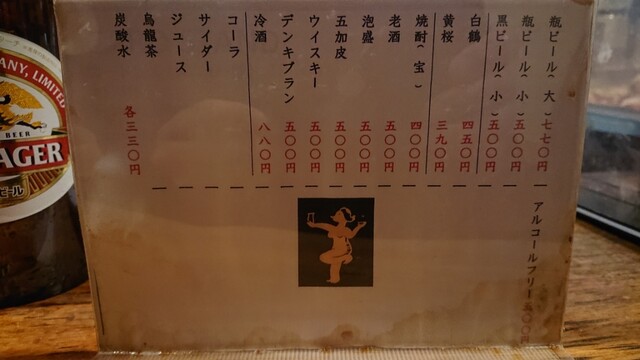 瓶ビール(大) 七七〇円
瓶ビール(小) 五〇〇円
黒ビール(小) 五〇〇円
白鶴 四五〇円
黄桜 三九〇円
焼酎(宝) 四〇〇円
老酒 五〇〇円
泡盛 五〇〇円
五加皮 五〇〇円
ウイスキー 五〇〇円
デンキブラン 五〇〇円
冷酒 八八〇円
コーラ
サイダー
ジュース
烏龍茶
炭酸水
各三三〇円
アルコールフリー 五〇〇円
ANY, LIMITED
BEER
LAGER
ビール